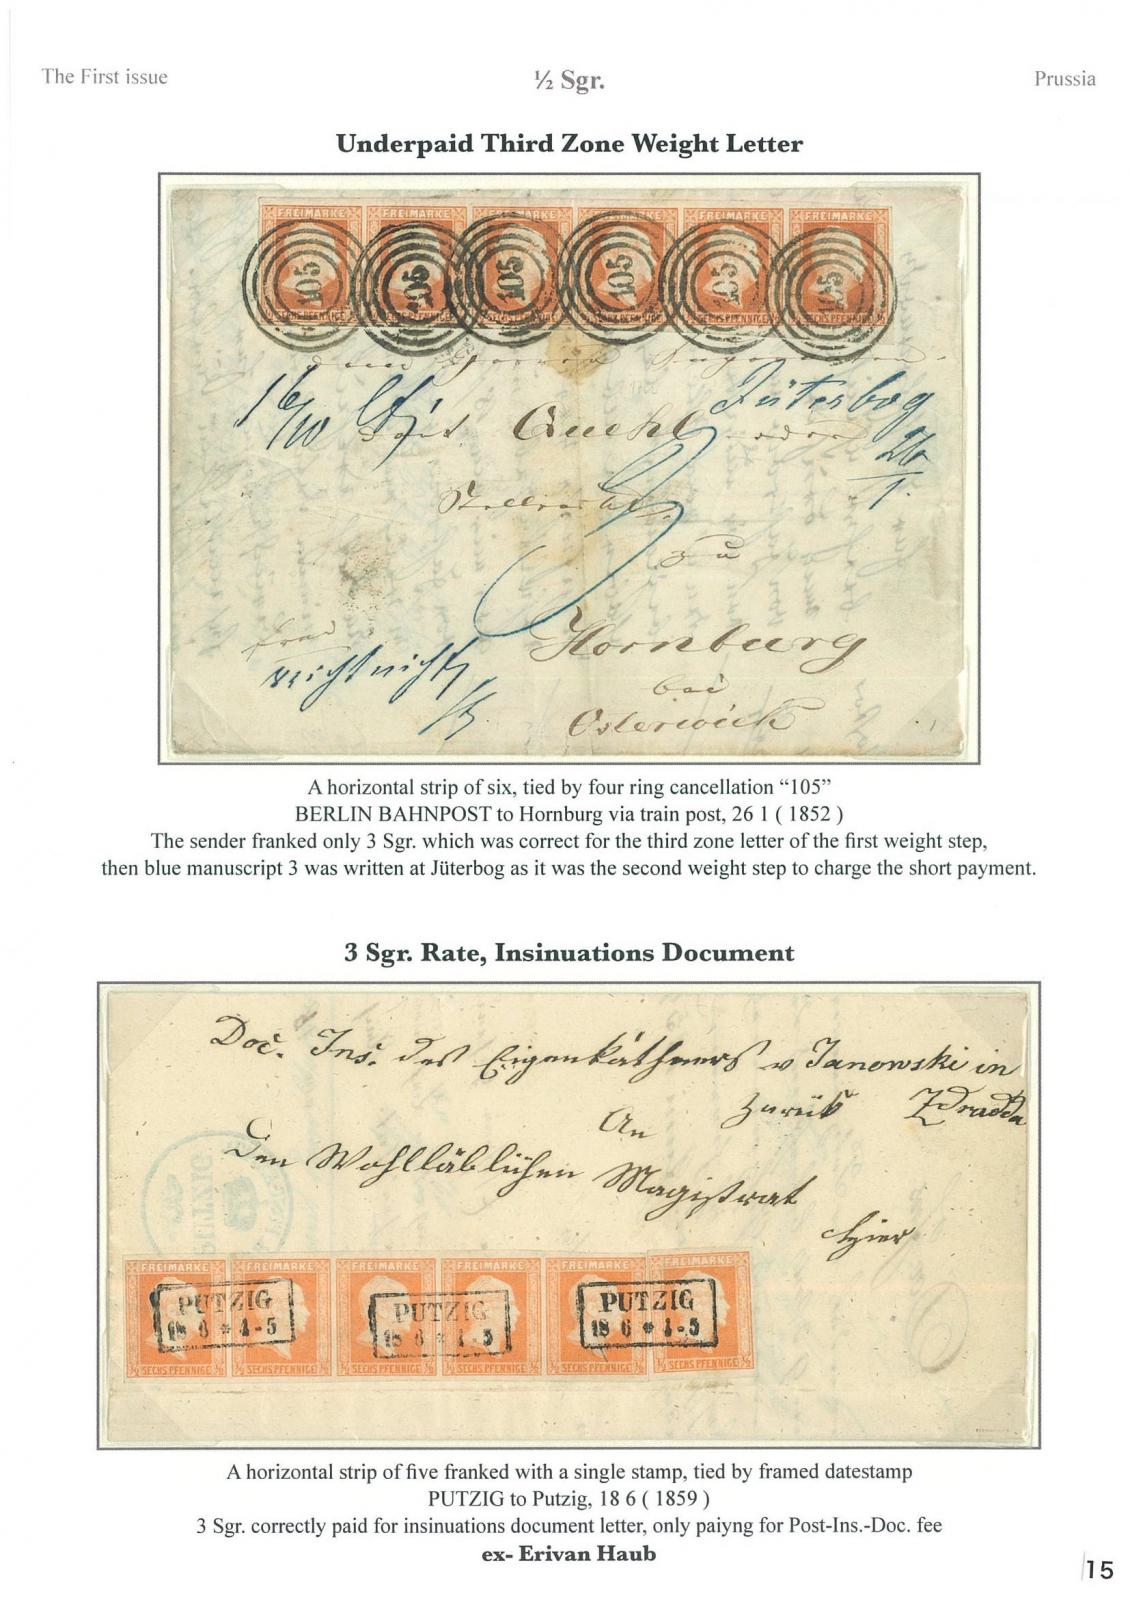 The First issue
½ Sgr.
Prussia
Underpaid Third Zone Weight Letter
FREIMARKE FREIMARKE FREIMARKE FREIMARKE FREIMARKE FREIMARKE
105 105 105 105 105 105
SECHS PFENNIGE SECHS PFENNIGE SECHS PFENNIGE SECHS PFENNIGE SECHS PFENNIGE SECHS PFENNIGE
16/10
Jüterbog
26/1.
Quehl
3
zu
Hornburg
bei
Osterwieck
reicht nicht
A horizontal strip of six, tied by four ring cancellation “105”
BERLIN BAHNPOST to Hornburg via train post, 26 1 ( 1852 )
The sender franked only 3 Sgr. which was correct for the third zone letter of the first weight step,
then blue manuscript 3 was written at Jüterbog as it was the second weight step to charge the short payment.
3 Sgr. Rate, Insinuations Document
Doc. Ins. des Eigenkäthners v Janowski in
zurück Zdrada
An
Den Wohllöblichen Magistrat
hier
PUTZIG
FREIMARKE FREIMARKE FREIMARKE FREIMARKE FREIMARKE FREIMARKE
PUTZIG PUTZIG PUTZIG
18 6 * 4-5 18 6 * 4-5 18 6 * 4-5
½ SECHS PFENNIGE ½ ½ SECHS PFENNIGE ½ ½ SECHS PFENNIGE ½ ½ SECHS PFENNIGE ½ ½ SECHS PFENNIGE ½ ½ SECHS PFENNIGE ½
A horizontal strip of five franked with a single stamp, tied by framed datestamp
PUTZIG to Putzig, 18 6 ( 1859 )
3 Sgr. correctly paid for insinuations document letter, only paiyng for Post-Ins.-Doc. fee
ex- Erivan Haub
15